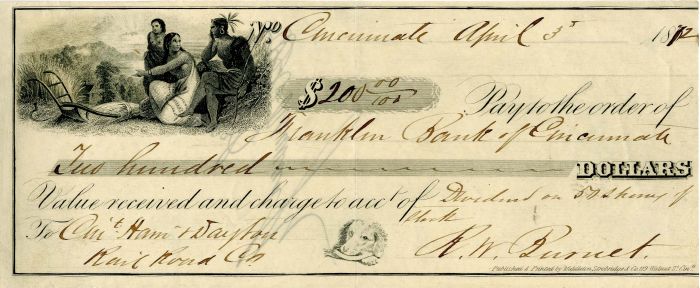 Cincinnati April 3d 1872
$200 00/100 Pay to the order of
Franklin Bank of Cincinnati
Two hundred DOLLARS
Value received and charge to acct. of Dividend on 57 Shares of
Stock
To Cint. Ham & Dayton
Rail Road Co R. W. Burnet.
Published & Printed by Middleton, Strobridge & Co. 119 Walnut St. Cin. O.